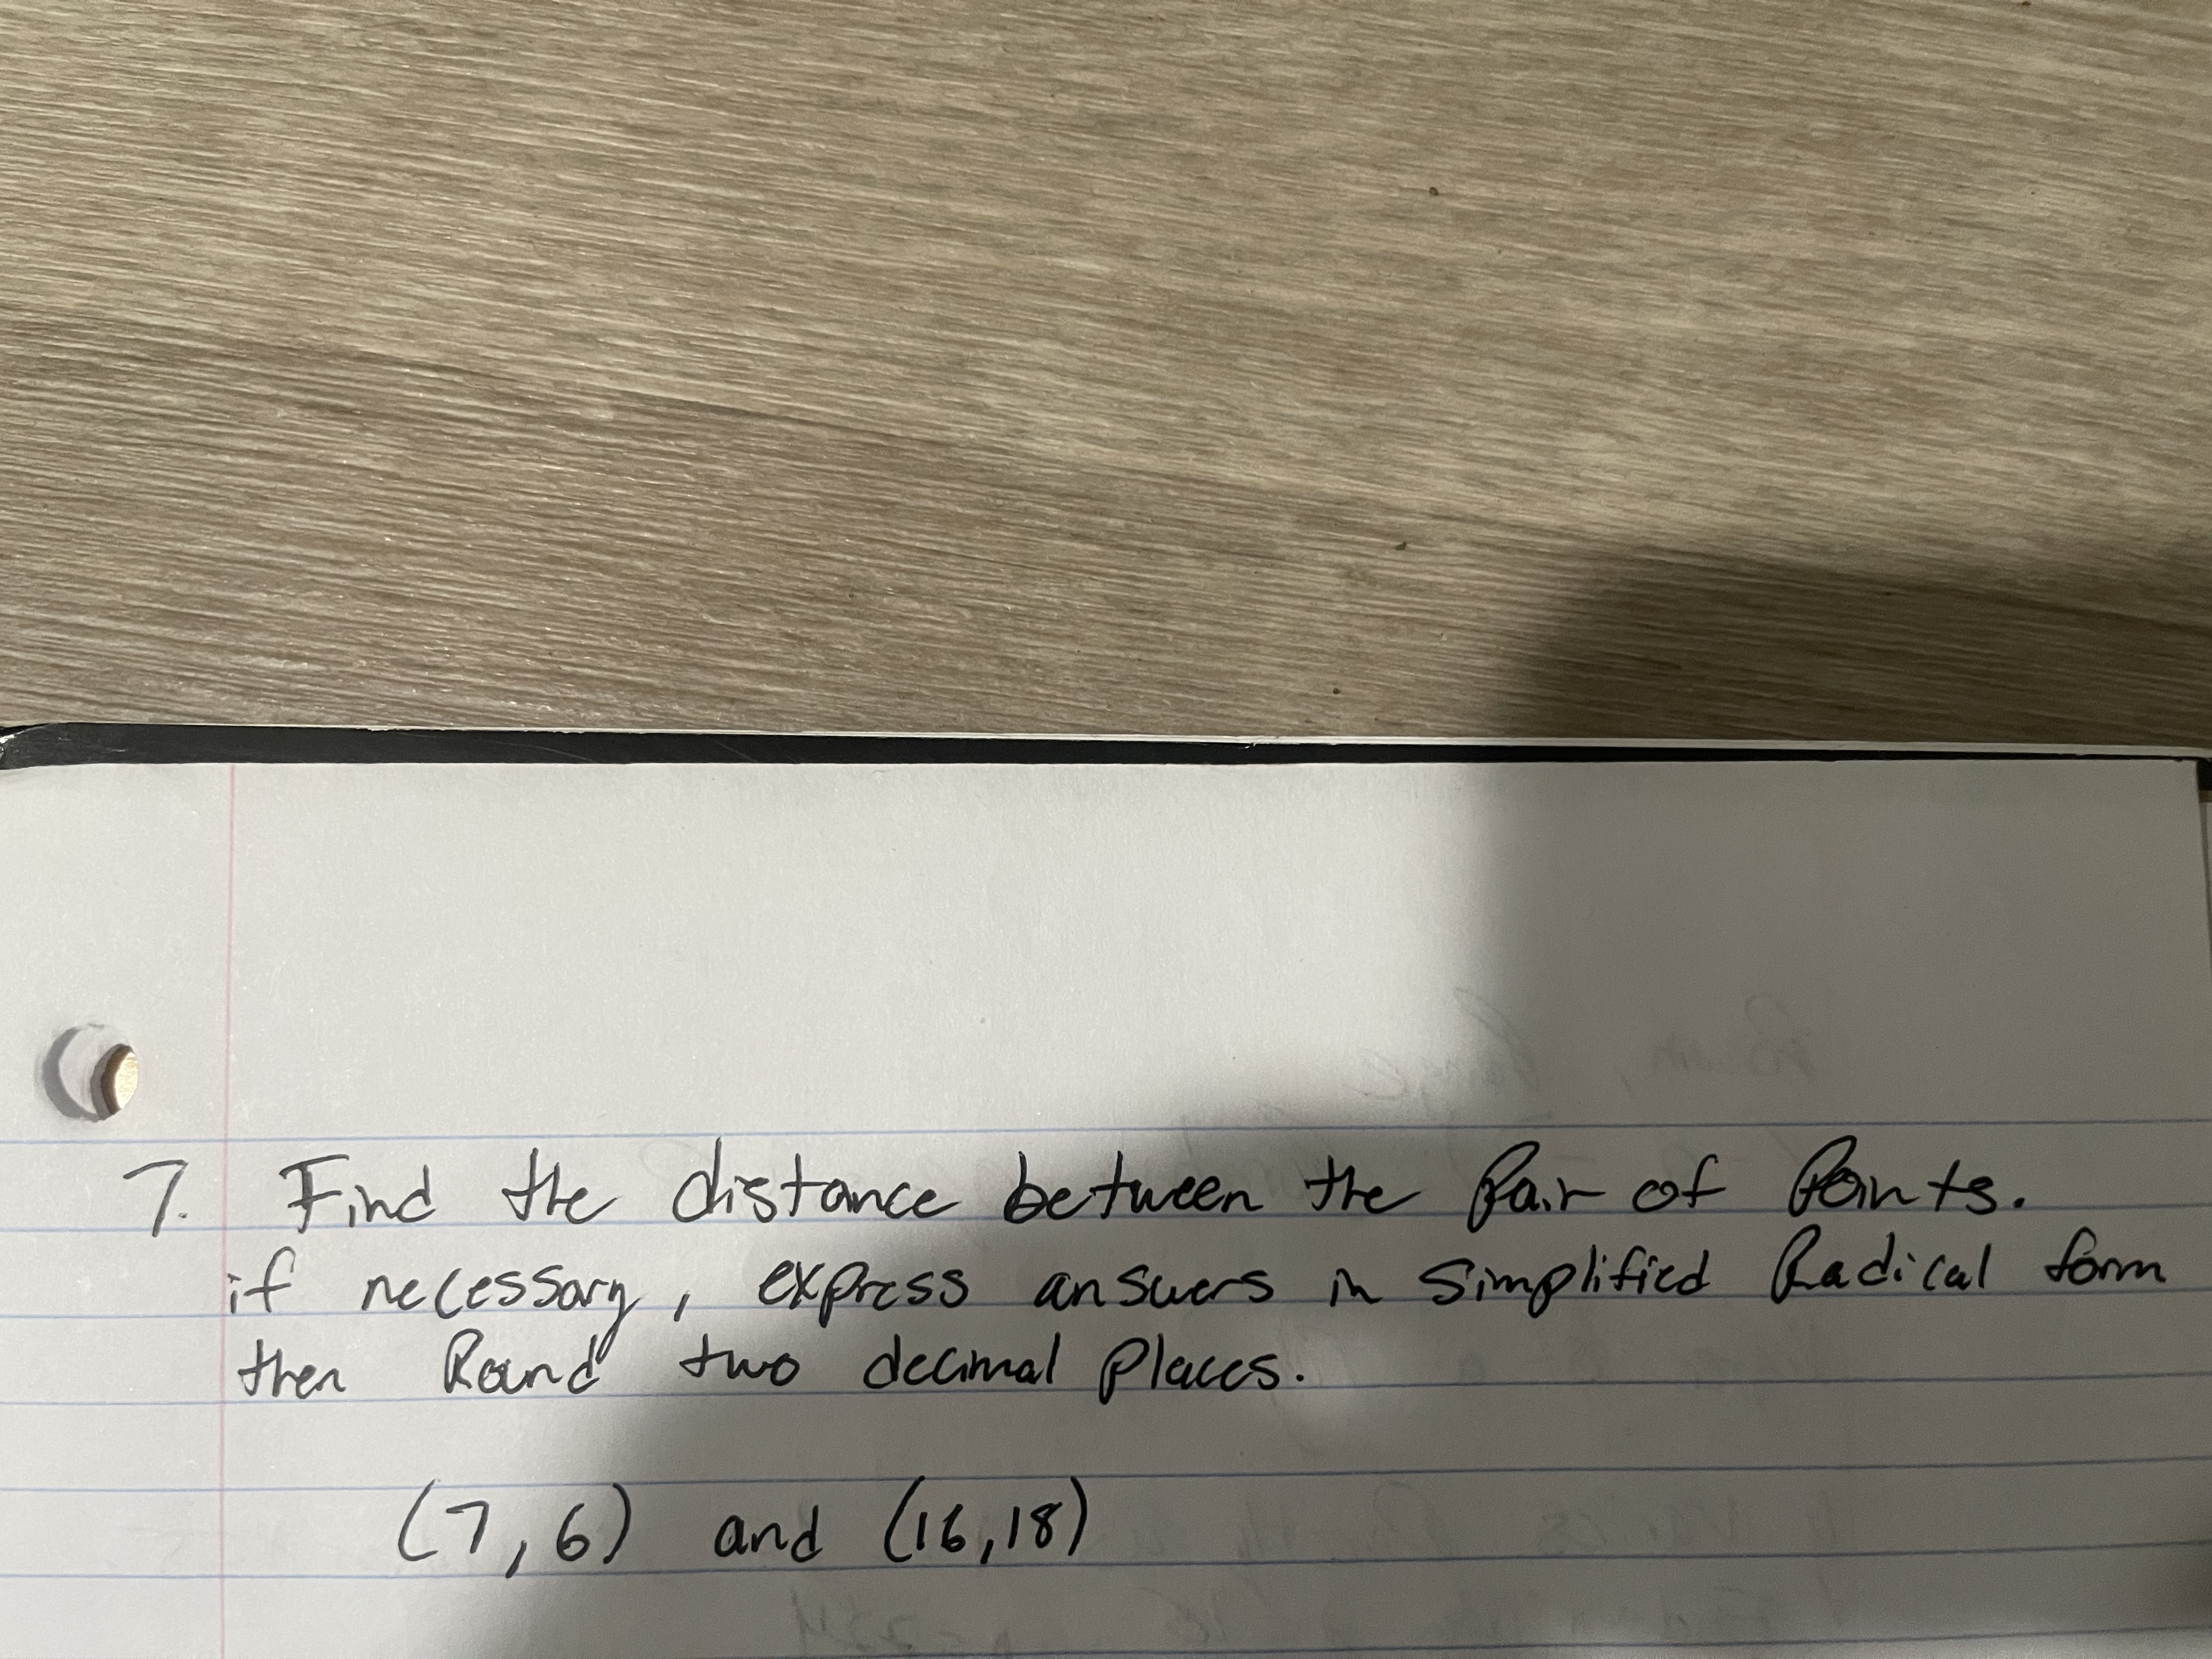 7. Find the distance between the Pair of Points.
if necessary, express answers in Simplified Radical form
then Round two decimal Places.
(7,6) and (16,18)